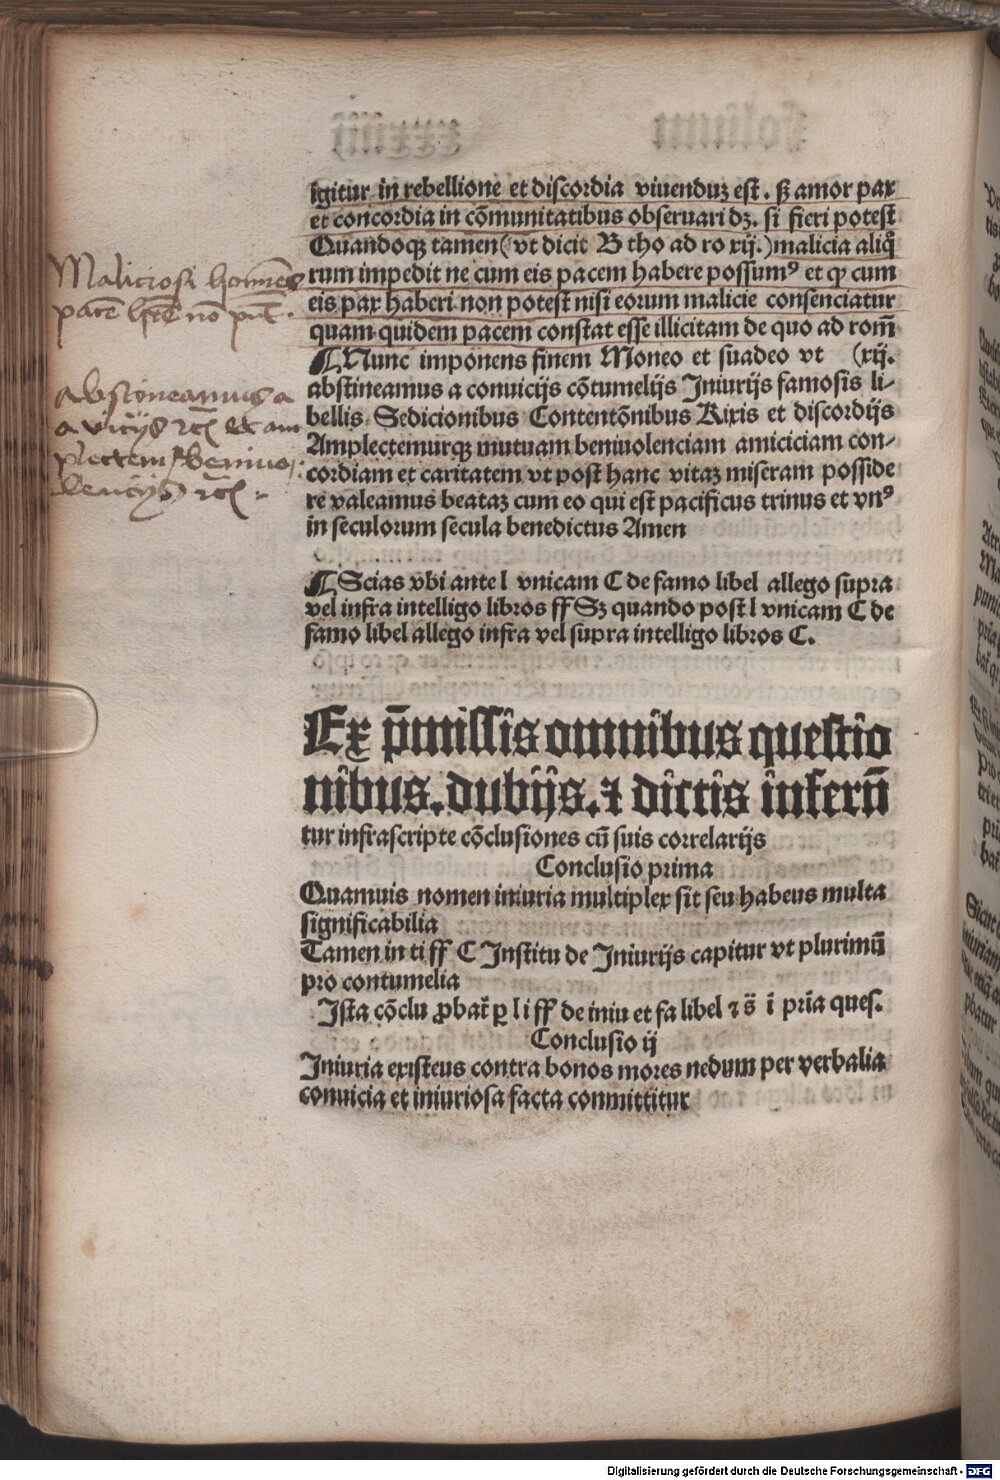 igitur in rebellione et discordia viuenduz est. sꝫ amor pax
et concordia in cōmunitatibus obseruari dꝫ. si fieri potest
Quandoqꝫ tamen (vt dicit B tho ad ro xij.) malicia aliq̄
rum impedit ne cum eis pacem habere possumꝰ et ꝙ cum
eis pax haberi non potest nisi eorum malicie consenciatur
quam quidem pacem constat esse illicitam de quo ad rom̄
¶Nunc imponens finem Moneo et suadeo vt (xij.
abstineamus a conuicijs cōtumelijs Iniurijs famosis li-
bellis Sedicionibus Contentōnibus Rixis et discordijs
Amplectemurqꝫ mutuam beniuolenciam amiciciam con-
cordiam et caritatem vt post hanc vitaz miseram posside
re valeamus beataz cum eo qui est pacificus trinus et vnꝰ
in seculorum secula benedictus Amen
¶Scias vbi ante l vnicam C de famo libel allego supra
vel infra intelligo libros ff Sꝫ quando post l vnicam C de
famo libel allego infra vel supra intelligo libros C.
Ex p̄missis omnibus questio
nibus. dubijs. ⁊ dictis inferū
tur infrascripte cōclusiones cū suis correlarijs
Conclusio prima
Quamuis nomen iniuria multiplex sit seu habeus multa
significabilia
Tamen in ti ff C Institu de Iniurijs capitur vt plurimū
pro contumelia
Ista cōclu ꝓbat̄ ꝑ l i ff de iniu et fa libel ⁊ s̄ i pr̄ia ques.
Conclusio ij
Iniuria existeus contra bonos mores nedum per verbalia
conuicia et iniuriosa facta conmittitur
Maliciosi homīes
pacē hr̄e nō pn̄t.
Abstineamus a
a vicijs ⁊cͣ et am
plectem beniuo
lencijs ⁊cͣ.
Digitalisierung gefördert durch die Deutsche Forschungsgemeinschaft - DFG